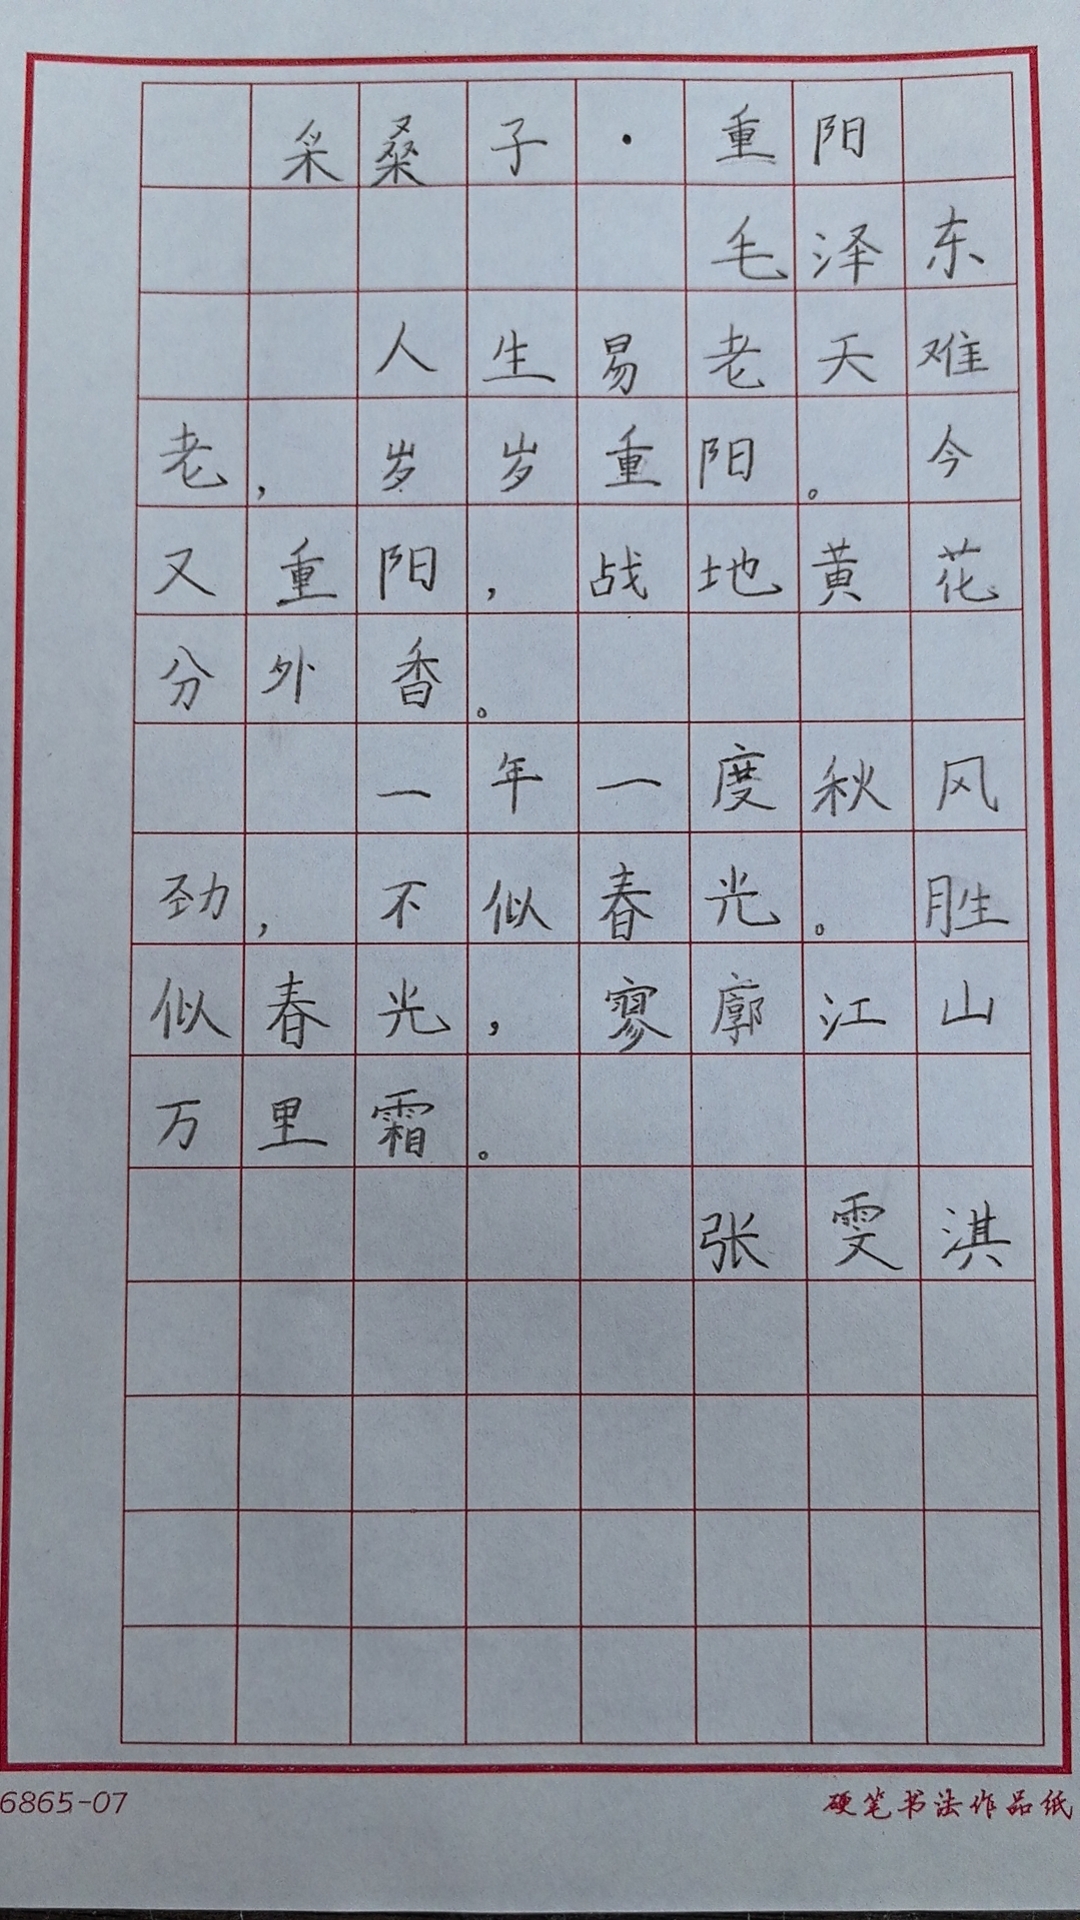 采桑子·重阳
毛泽东
人生易老天难
老，岁岁重阳。今
又重阳，战地黄花
分外香。
一年一度秋风
劲，不似春光。胜
似春光，寥廓江山
万里霜。
张雯淇
6865-07
硬笔书法作品纸